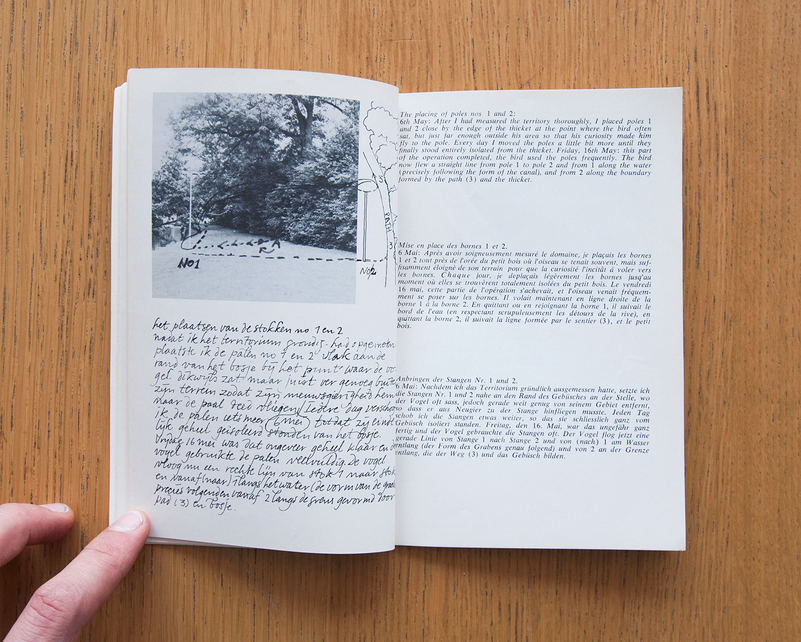 No1
No2
PATH
3
het plaatsen van de stokken no. 1 en 2
naдат ik het territorium grondig had opgemeten
plaatste ik de palen no 1 en 2 vlak aan de
rand van het bosje bij het punt waar de vo-
gel dikwijls zat maar juist ver genoeg buiten
zijn terrein zodat zijn nieuwsgierigheid hem
naar de paal deed vliegen. Iedere dag verschoof
ik de palen iets meer (6 mei) totdat zij eind
lijk geheel geïsoleerd stonden van het bosje.
Vrijdag 16 mei was dat ongeveer geheel klaar en de
vogel gebruikte de palen veelvuldig. De vogel
vloog nu een rechte lijn van stok 1 naar stok
en vanaf (naar) 1 langs het water (de vorm van de gracht
precies volgend en vanaf 2 langs de grens gevormd door
pad (3) en bosje.
The placing of poles nos 1 and 2:
6th May: After I had measured the territory thoroughly, I placed poles 1
and 2 close by the edge of the thicket at the point where the bird often
sat, but just far enough outside his area so that his curiosity made him
fly to the pole. Every day I moved the poles a little bit more until they
finally stood entirely isolated from the thicket. Friday, 16th May: this part
of the operation completed, the bird used the poles frequently. The bird
now flew a straight line from pole 1 to pole 2 and from 1 along the water
(precisely following the form of the canal), and from 2 along the boundary
formed by the path (3) and the thicket.
Mise en place des bornes 1 et 2.
6 Mai: Après avoir soigneusement mesuré le domaine, je plaçais les bornes
1 et 2 tout près de l'orée du petit bois où l'oiseau se tenait souvent, mais suf-
fisamment éloigné de son terrain pour que la curiosité l'incitât à voler vers
les bornes. Chaque jour, je deplaçais légèrement les bornes jusqu'au
moment où elles se trouvèrent totalement isolées du petit bois. Le vendredi
16 mai, cette partie de l'opération s'achevait, et l'oiseau venait fréquem-
ment se poser sur les bornes. Il volait maintenant en ligne droite de la
borne 1 à la borne 2. En quittant ou en rejoignant la borne 1, il suivait le
bord de l'eau (en respectant scrupuleusement les détours de la rive), en
quittant la borne 2, il suivait la ligne formée par le sentier (3), et le petit
bois.
Anbringen der Stangen Nr. 1 und 2.
6 Mai: Nachdem ich das Territorium gründlich ausgemessen hatte, setzte ich
die Stangen Nr. 1 und 2 nahe an den Rand des Gebüsches an der Stelle, wo
der Vogel oft sass, jedoch gerade weit genug von seinem Gebiet entfernt,
so dass er aus Neugier zu der Stange hinfliegen musste. Jeden Tag
schob ich die Stangen etwas weiter, so das sie schliesslich ganz vom
Gebüsch isoliert standen. Freitag, den 16. Mai, war das ungefähr ganz
fertig und der Vogel gebrauchte die Stangen oft. Der Vogel flog jetzt eine
gerade Linie von Stange 1 nach Stange 2 und von (nach) 1 am Wasser
entlang (der Form des Grabens genau folgend) und von 2 an der Grenze
entlang, die der Weg (3) und das Gebüsch bilden.